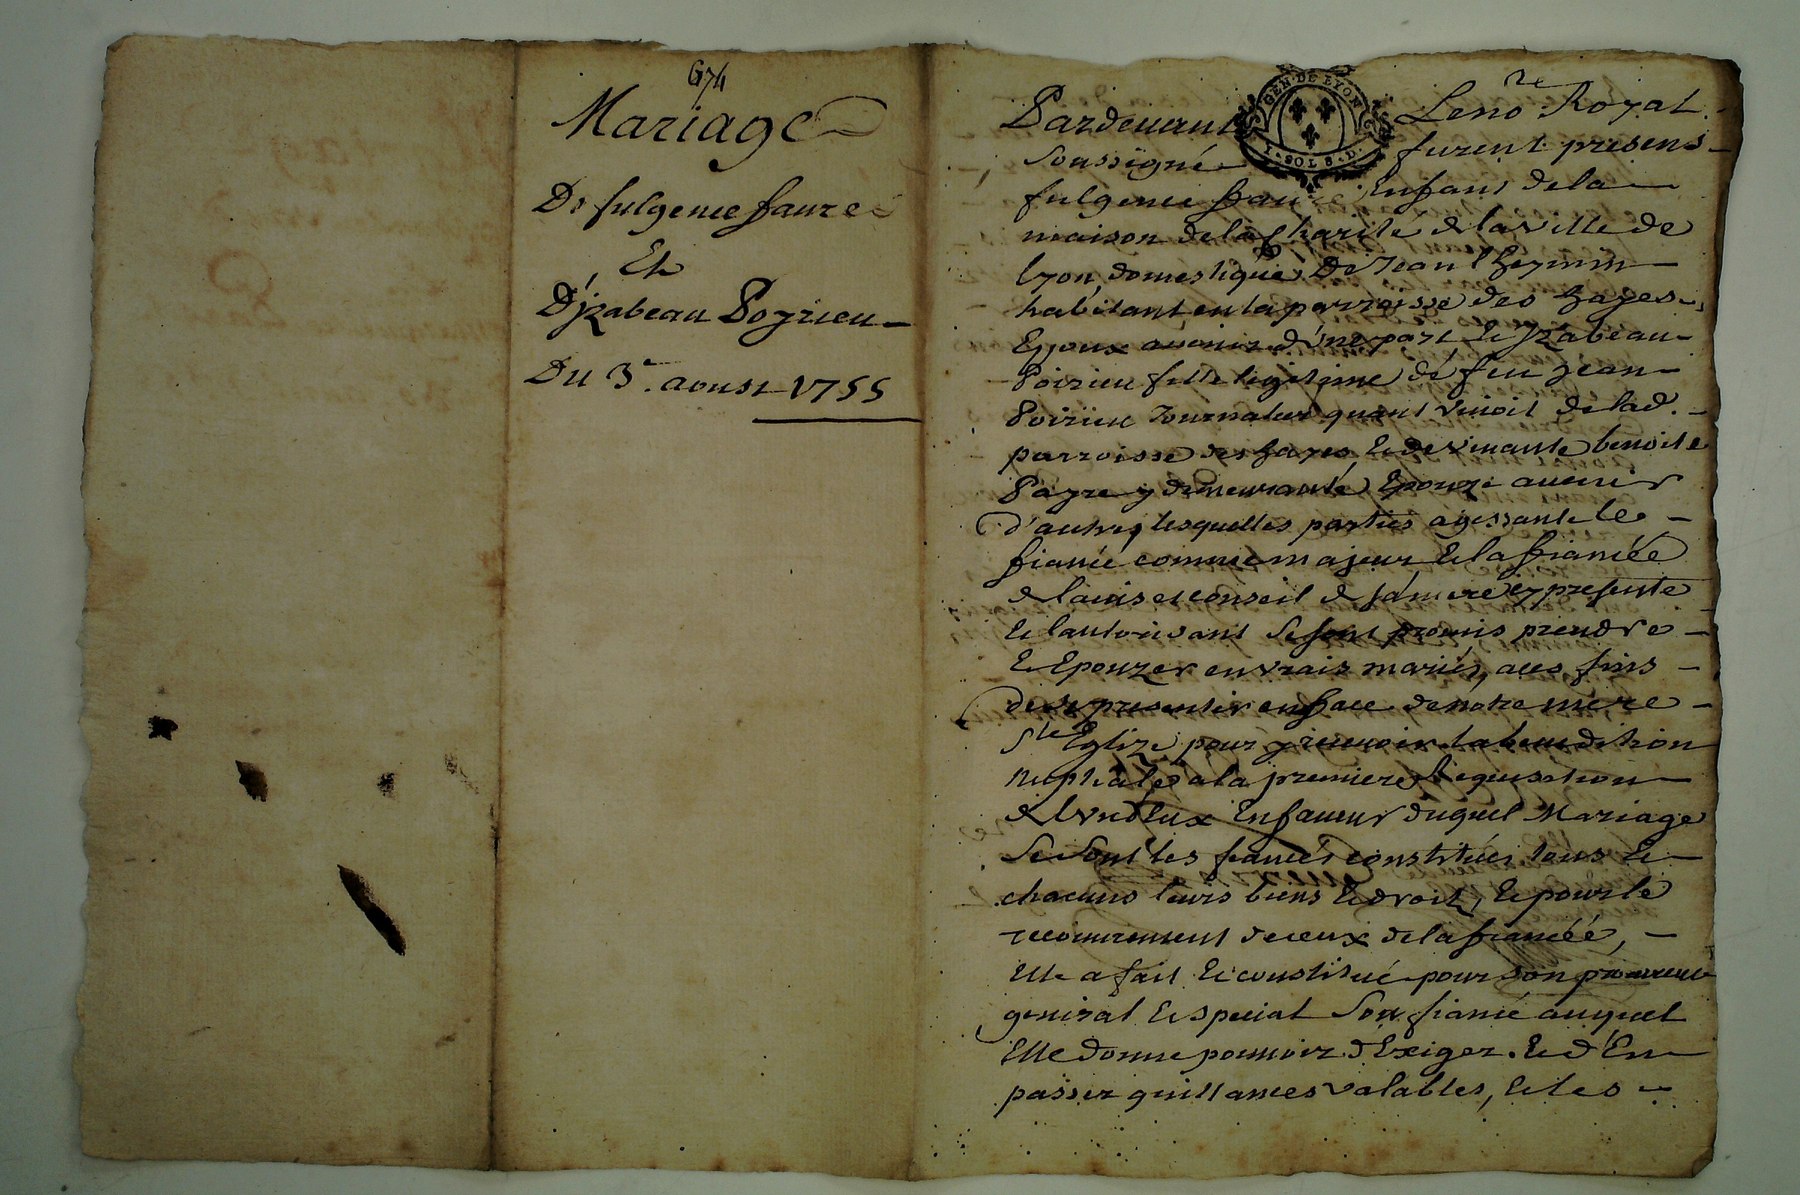 674
Mariage
De fulgence faure
Et
D'yzabeau Poyrieu
Du 3e. aoust 1755
GEN · DE LYON
1 · SOL 8 · D ·
Pardevant Le no re Royal
Soussigné furent presens
fulgence faure Enfant de la
maison de la Charité de la ville de
lyon, domestique De Jean
habitant en la parroisse des hayes
Epoux avenir d'une part Et Yzabeau
Poirieu fille legitime de feu Jean
Poirieu Journalier quant vivoit de lad.
parroisse des hayes Et de vivante benoite
Payre y demeurante, Epouze avenir
d'autre, lesquelles parties agissant le
fiancé comme majeur Et la fiancée
de l'avis et conseil de sa mere icy presente
Et lautorisant se sont promis prendre
Et Epouzer en vrais mariés, aces fins
de se presenter en face de notre mere
Ste Eglize pour y recevoir la benediction
nuptiale a la premiere Requisition
de l'un d'Eux En faveur duquel Mariage
Se sont les fiancés constitués tous Et
chacuns leurs biens Et droits, Et pour le
recouvrement de ceux de la fiancée,
Elle a fait Et constitué pour son procureur
general Et special Son fiancé auquel
Elle donne pouvoir d'Exiger. Et d'En
passer quittances valables, Et les